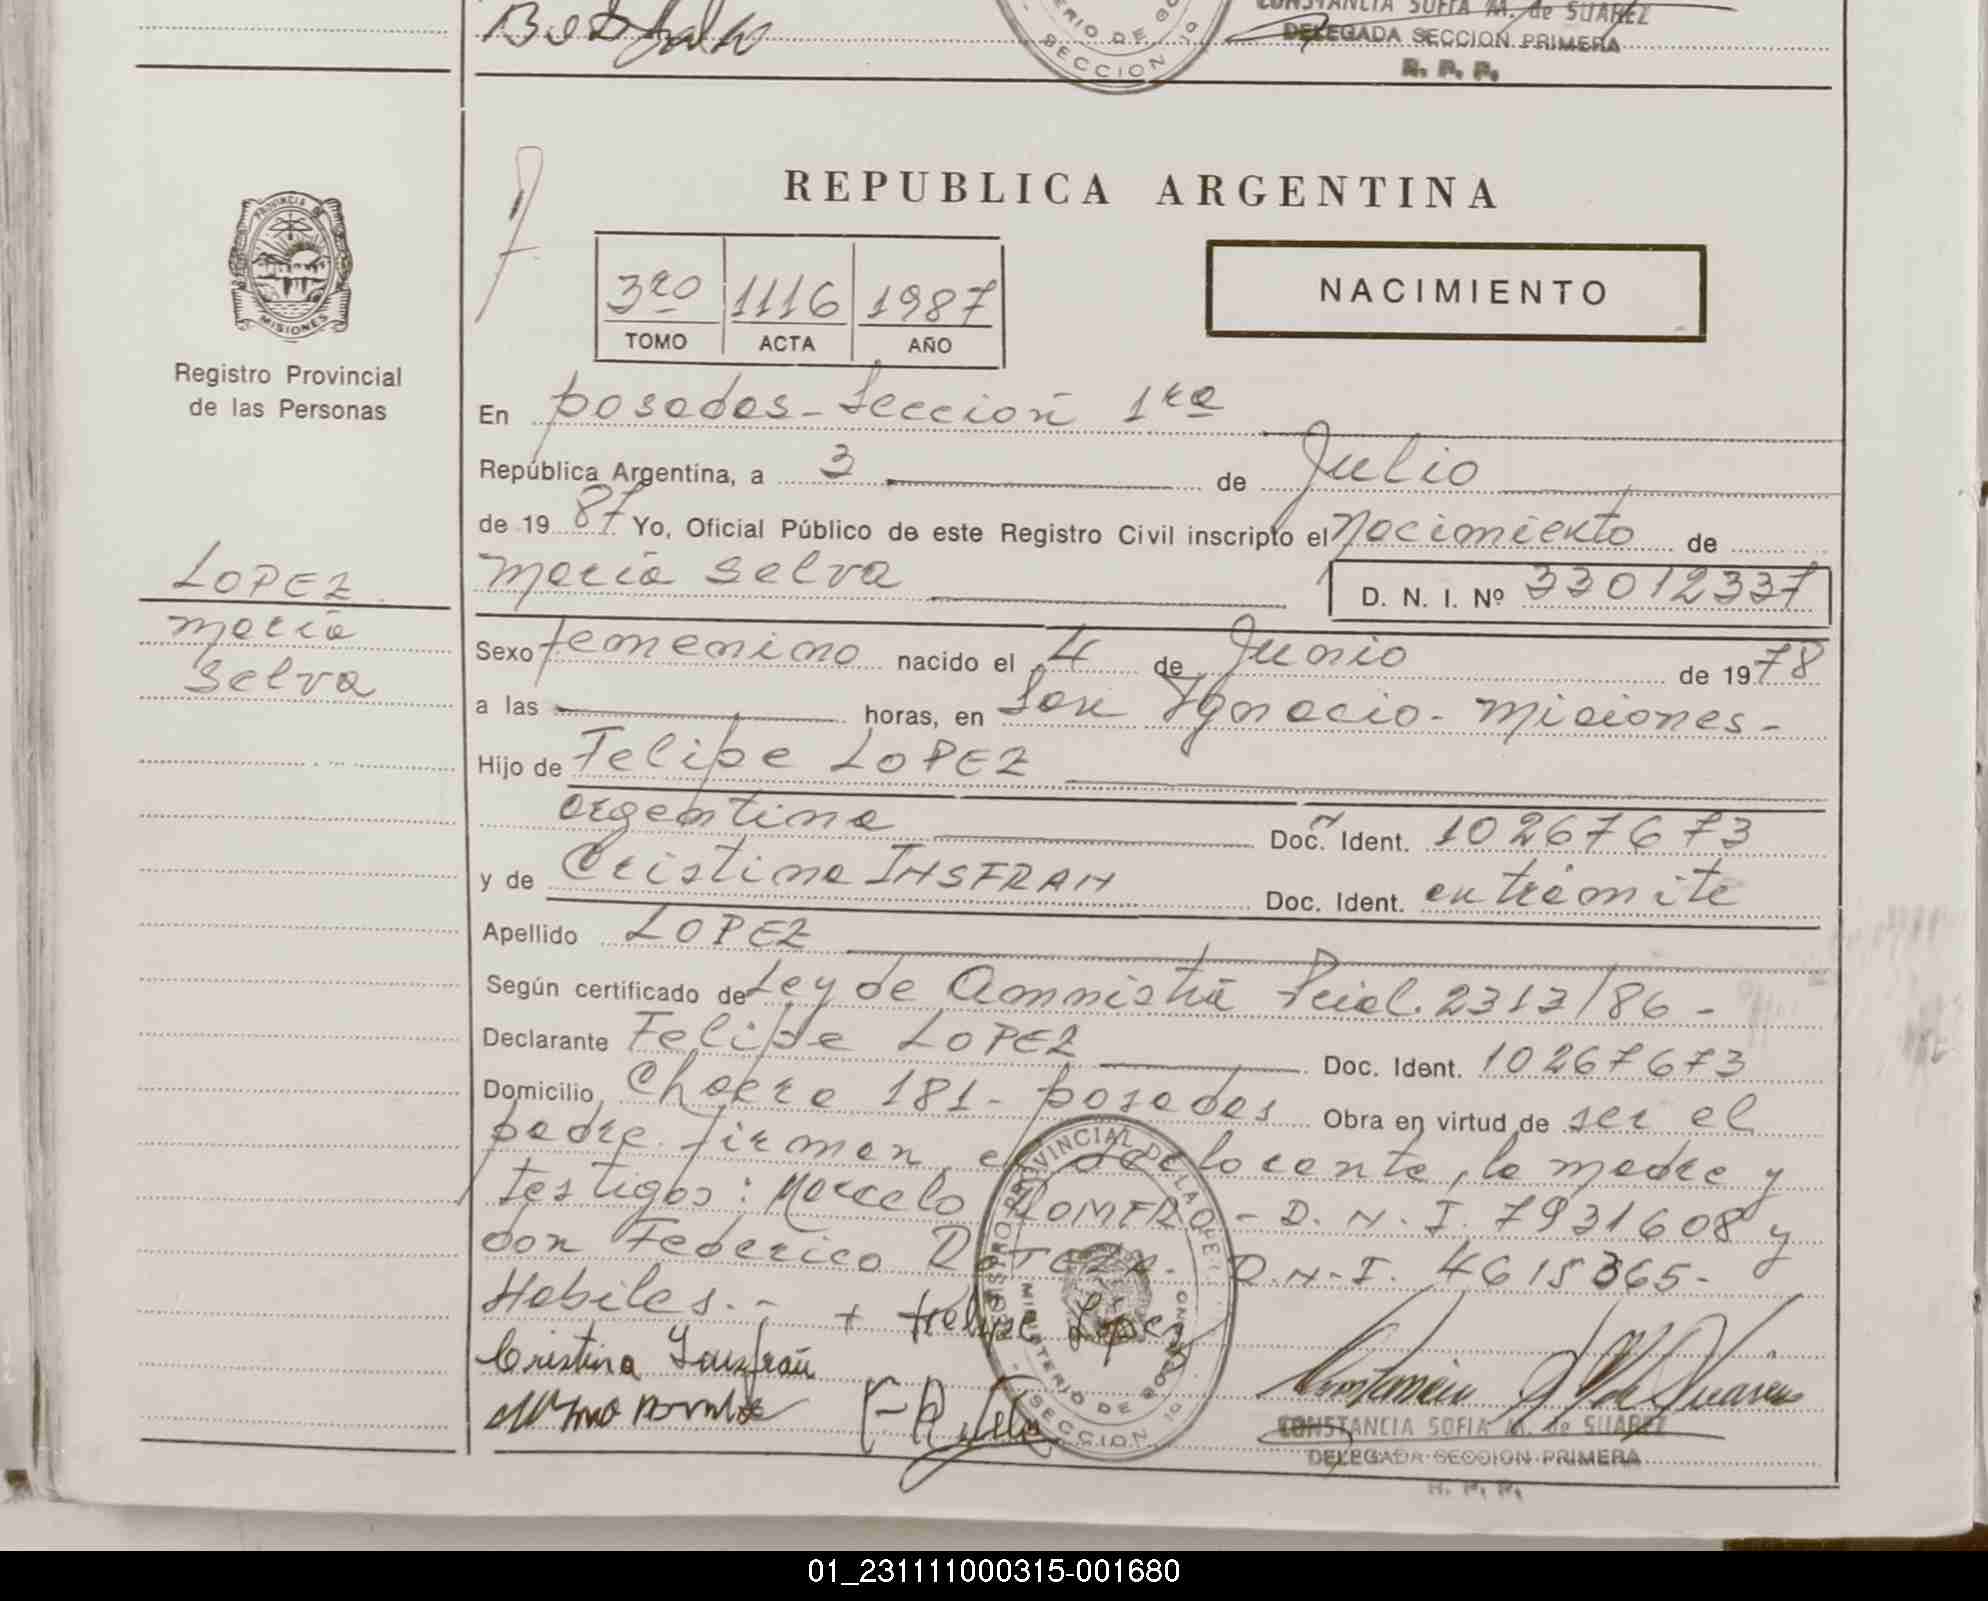 CONSTANCIA SOFIA M. de SUAREZ
DELEGADA SECCION PRIMERA
R. P. P.
SECCION 1º
REPUBLICA ARGENTINA
NACIMIENTO
3ro 1116 1987
TOMO ACTA AÑO
PROVINCIA DE
MISIONES
Registro Provincial
de las Personas
LOPEZ
María
Selva
En posadas - Sección 1ra
República Argentina, a 3 de Julio
de 1987 Yo, Oficial Público de este Registro Civil inscripto el Nacimiento de
María Selva D. N. I. Nº 33012337
Sexo femenino nacido el 4 de Junio de 1978
a las horas, en San Ygnacio - Misiones -
Hijo de Felipe LOPEZ
argentino Doc. Ident. 10267673
y de Cristina INSFRAN Doc. Ident. en trámite
Apellido LOPEZ
Según certificado de Ley de Amnistía Pcial. 2313/86 -
Declarante Felipe LOPEZ Doc. Ident. 10267673
Domicilio Chacra 181 - posadas Obra en virtud de ser el
padre. firman, el declarante, la madre y
testigos: Marcelo ROMERO - D.N.I. 7931608 y
don Federico D.N.I. 4615365 -
Habiles. - + Felipe Lopez
Cristina Insfrán
REGISTRO PROVINCIAL DE LAS PER
MINISTERIO DE GOB
SECCION 1º
CONSTANCIA SOFIA M. de SUAREZ
DELEGADA SECCION PRIMERA
R. P. P.
01_231111000315-001680